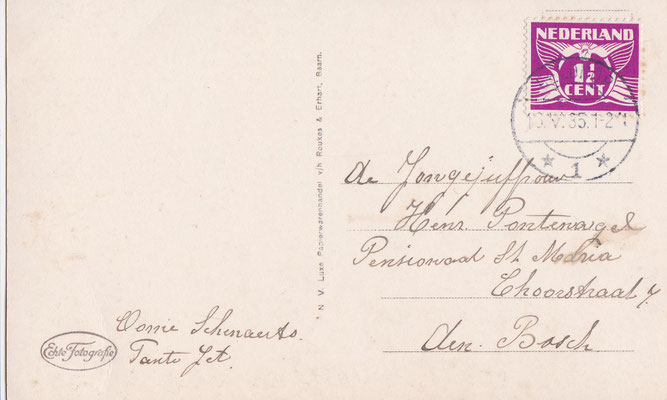 NEDERLAND
1½
CENT
1
N. V. Luxe Papierwarenhandel v/h Roukes & Erhart, Baarn.
de Jongejuffrouw
Henr. Pontenagel
Pensionaat St. Maria
Choorstraat 7
den Bosch.
Oome Schenaerts.
Tante Jet.
Echte Fotografie